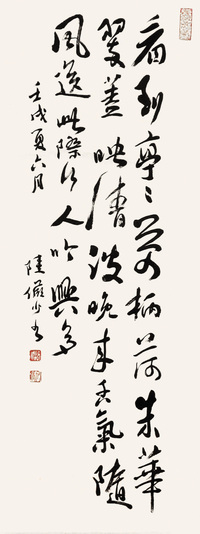 看到亭〻萬柄荷朱華
翠蓋映清波晚來香氣隨
風逸此際行人吟興多
壬戌夏六月
陸儼少書